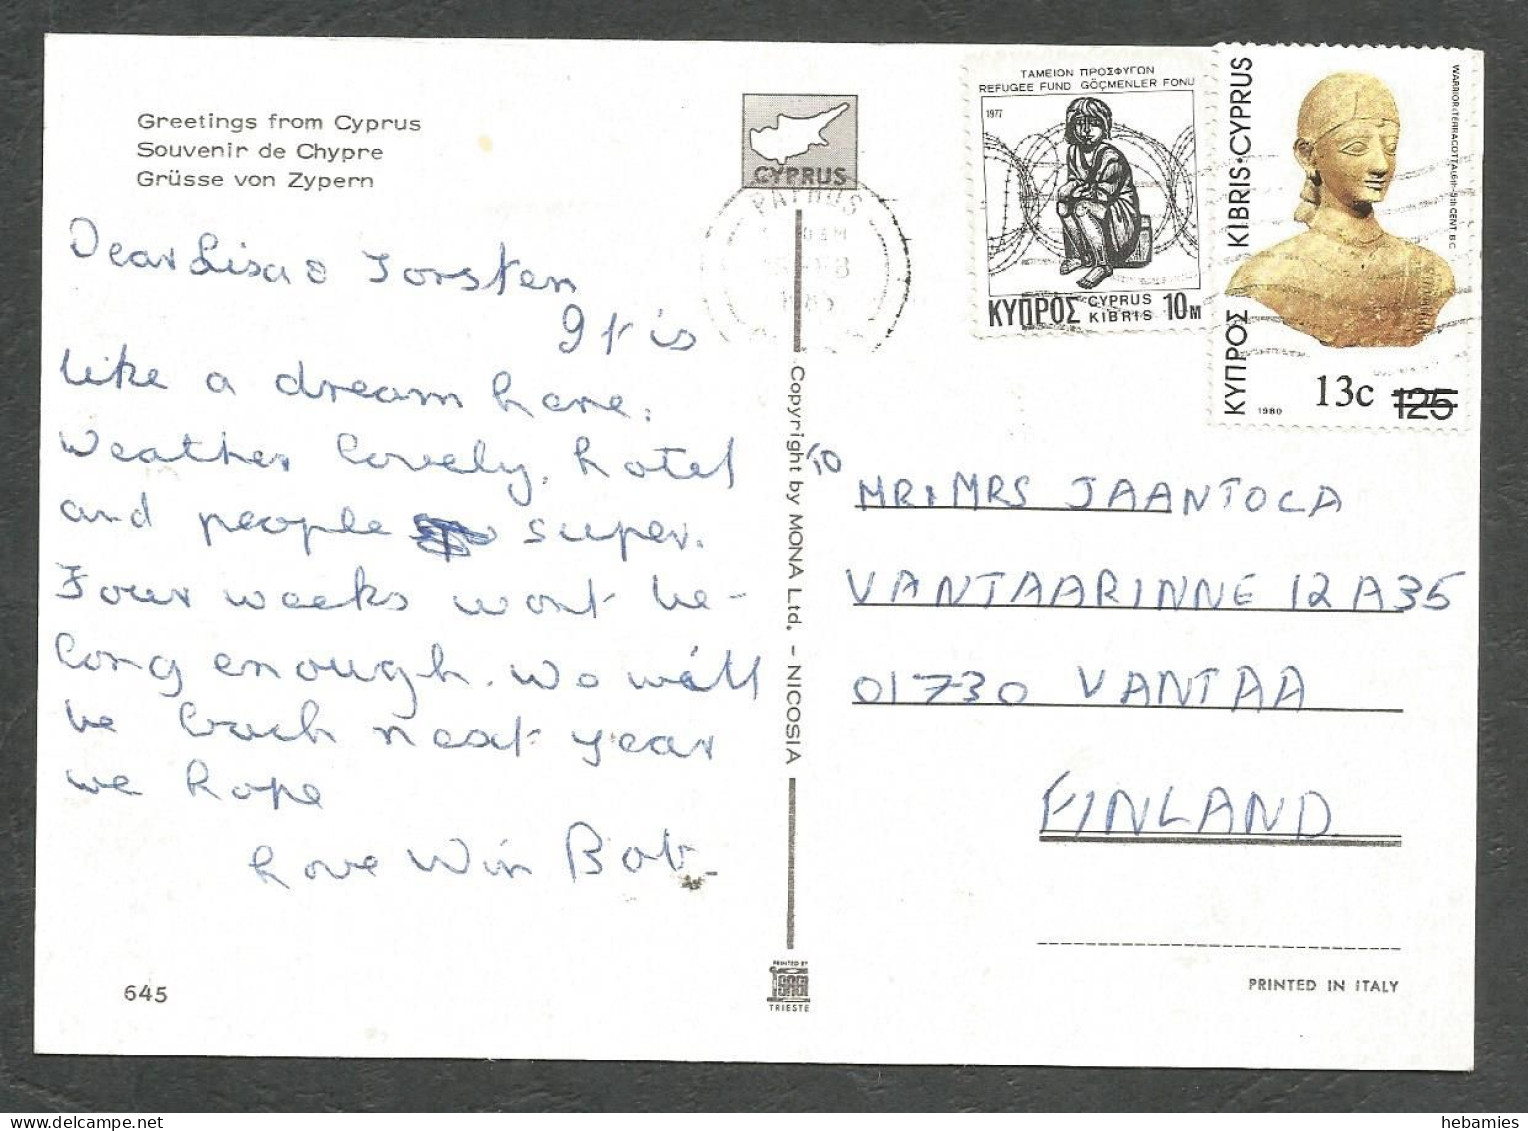 Greetings from Cyprus
Souvenir de Chypre
Grüsse von Zypern
CYPRUS
PAPHOS
ΤΑΜΕΙΟΝ ΠΡΟΣΦΥΓΩΝ
REFUGEE FUND GÖÇMENLER FONU
1977
ΚΥΠΡΟΣ CYPRUS KIBRIS 10M
ΚΥΠΡΟΣ KIBRIS·CYPRUS
WARRIOR (TERRACOTTA) 6th-5th CENT. B.C.
1980
13c 125
Dear Lisa & Torsten
It is
like a dream here.
Weather lovely, hotel
and people super.
Four weeks wont be-
long enough. We will
be back next year
we hope
Love Win Bob
Copyright by MONA Ltd. - NICOSIA
TO
MR & MRS JAANTOLA
VANTAARINNE 12 A 35
01730 VANTAA
FINLAND
645
PRINTED BY
SAGI
TRIESTE
PRINTED IN ITALY
hebamies